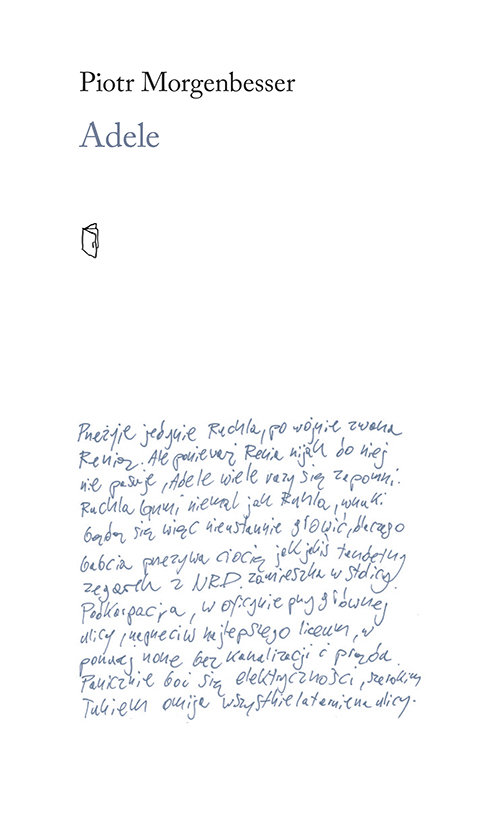 Piotr Morgenbesser
Adele
Przeżyje jedynie Ruchla, po wojnie zwana
Renią. Ale ponieważ Renia nijak do niej
nie pasuje, Adele wiele razy się zapomni.
Ruchla brzmi niemal jak Ruhla, wnuki
będą się więc nieustannie głowić, dlaczego
babcia przezywa ciocię jak jakiś tandetny
zegarek z NRD. zamieszka w stolicy
Podkarpacia, w oficynie przy głównej
ulicy, naprzeciw najlepszego liceum, w
norze bez kanalizacji i prądu.
Panicznie boi się elektryczności, szerokim
łukiem omija wszystkie latarnie na ulicy.